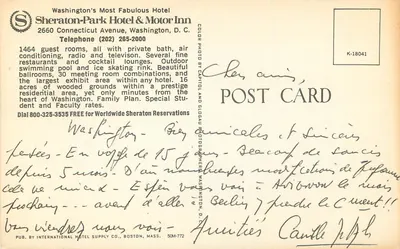 Washington's Most Fabulous Hotel
Sheraton-Park Hotel & Motor Inn
2660 Connecticut Avenue, Washington, D. C.
Telephone (202) 265-2000
1464 guest rooms, all with private bath, air
conditioning, radio and television. Several fine
restaurants and cocktail lounges. Outdoor
swimming pool and ice skating rink. Beautiful
ballrooms, 30 meeting room combinations, and
the largest exhibit area within any hotel. 16
acres of wooded grounds within a prestige
residential area, yet only minutes from the
heart of Washington. Family Plan. Special Student
and Faculty rates.
Dial 800-325-3535 FREE for Worldwide Sheraton Reservations
K-18041
POST CARD
Chers amis,
Washington - Bien amicales et sincères
pensées - En voyage de 15 jours - Beaucoup de soucis
depuis 5 mois.
cela va mieux - Enfin vous
prochain - avant d'aller à Berlin y prendre le
Vous viendrez nous voir - Amitiés
PUB. BY INTERNATIONAL HOTEL SUPPLY CO., BOSTON, MASS. 50M-772